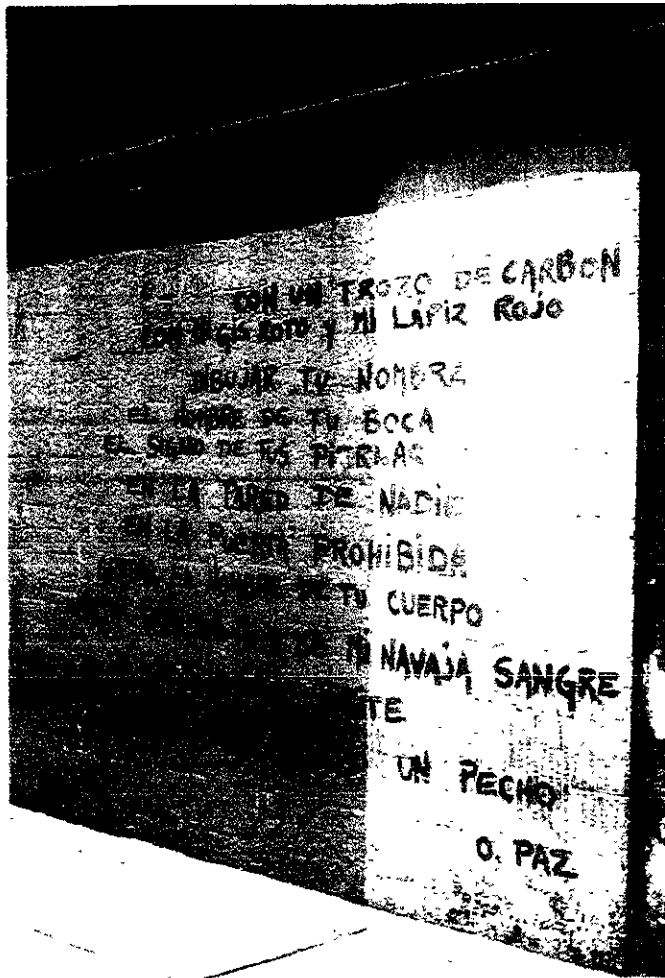 CON UN TROZO DE CARBON
CON MI GIS ROTO Y MI LAPIZ ROJO
DIBUJAR TU NOMBRE
EL NOMBRE DE TU BOCA
EL SIGNO DE TUS PIERNAS
EN LA PARED DE NADIE
EN LA PUERTA PROHIBIDA
DE TU CUERPO
MI NAVAJA SANGRE
TE
UN PECHO
O. PAZ